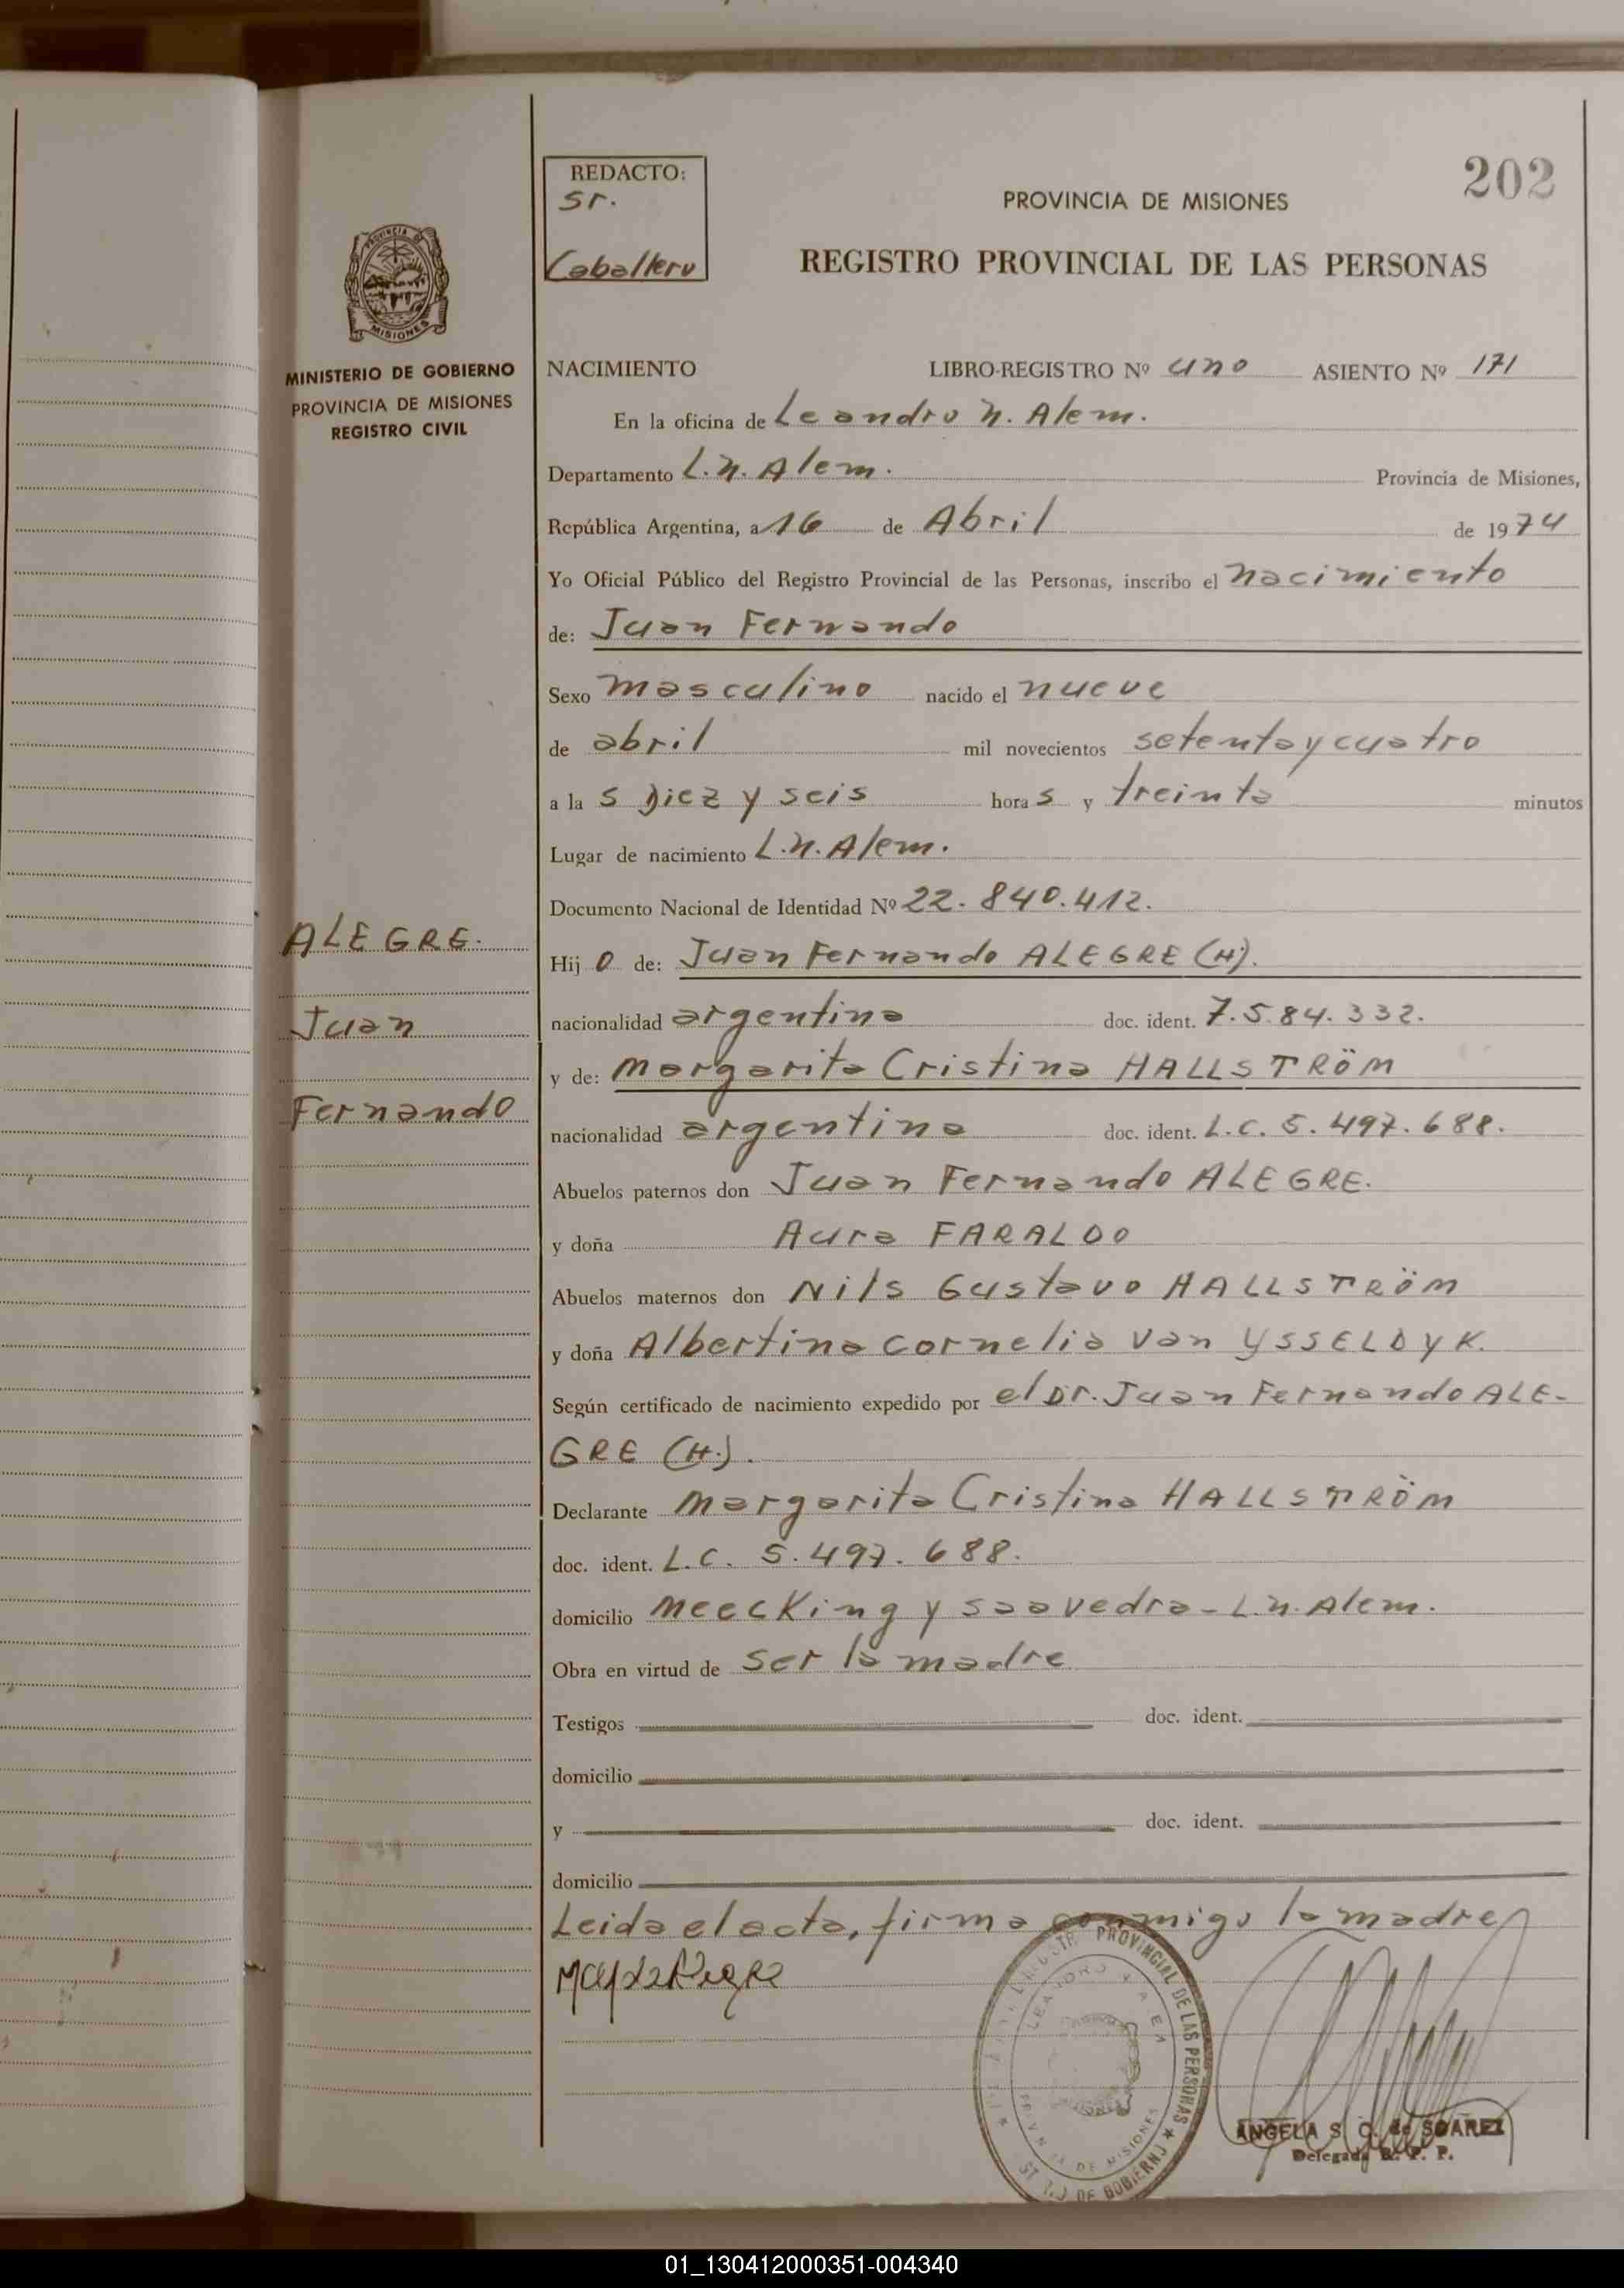 REDACTO:
Sr.
Caballero
202
PROVINCIA DE MISIONES
REGISTRO PROVINCIAL DE LAS PERSONAS
PROVINCIA DE
MISIONES
MINISTERIO DE GOBIERNO
PROVINCIA DE MISIONES
REGISTRO CIVIL
NACIMIENTO LIBRO-REGISTRO Nº uno ASIENTO Nº 171
En la oficina de Leandro N. Alem.
Departamento L.N. Alem. Provincia de Misiones,
República Argentina, a 16 de Abril de 1974
Yo Oficial Público del Registro Provincial de las Personas, inscribo el nacimiento
de: Juan Fernando
Sexo masculino nacido el nueve
de abril mil novecientos setenta y cuatro
a la s Diez y seis hora s y treinta minutos
Lugar de nacimiento L.N. Alem.
Documento Nacional de Identidad Nº 22.840.412.
ALEGRE.
Juan
Fernando
Hij o de: Juan Fernando ALEGRE (H).
nacionalidad argentina doc. ident. 7.584.332.
y de: Margarita Cristina HALLSTRÖM
nacionalidad argentina doc. ident. L.C. 5.497.688.
Abuelos paternos don Juan Fernando ALEGRE.
y doña Aura FARALDO
Abuelos maternos don Nils Gustavo HALLSTRÖM
y doña Albertina Cornelia Van YSSELDYK.
Según certificado de nacimiento expedido por el Dr. Juan Fernando ALE-
GRE (H).
Declarante Margarita Cristina HALLSTRÖM
doc. ident. L.C. 5.497.688.
domicilio Meecking y Saavedra - L.N. Alem.
Obra en virtud de ser la madre
Testigos doc. ident.
domicilio
y doc. ident.
domicilio
Leida el acta, firma conmigo la madre
PROVINCIAL DE LAS PERSONAS
DE GOBIERNO
DE MISIONES
ANGELA S. C. de SOAREZ
Delegada R. P. P.
01_130412000351-004340